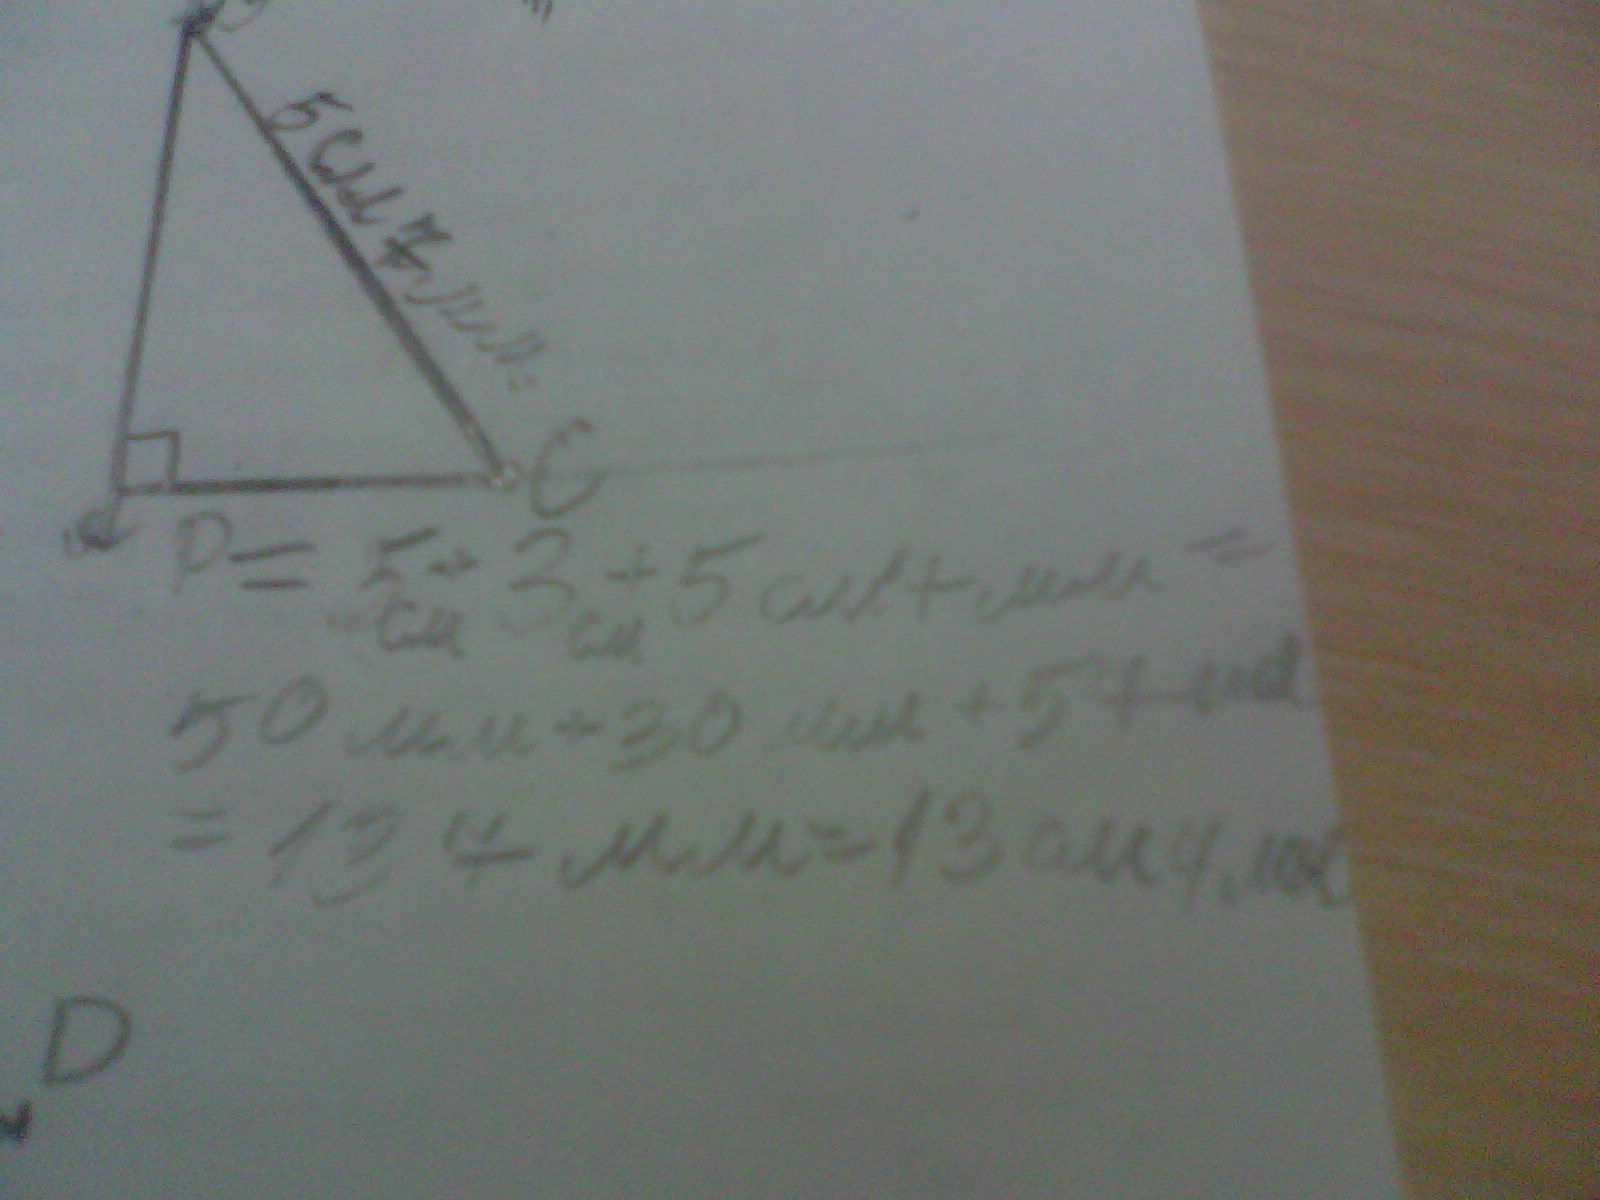 5 см 7 мм.
C
P = 5 см + 3 см + 5 см + мм =
50 мм + 30 мм + 57 мм
= 137 мм = 13 см 7 мм
D